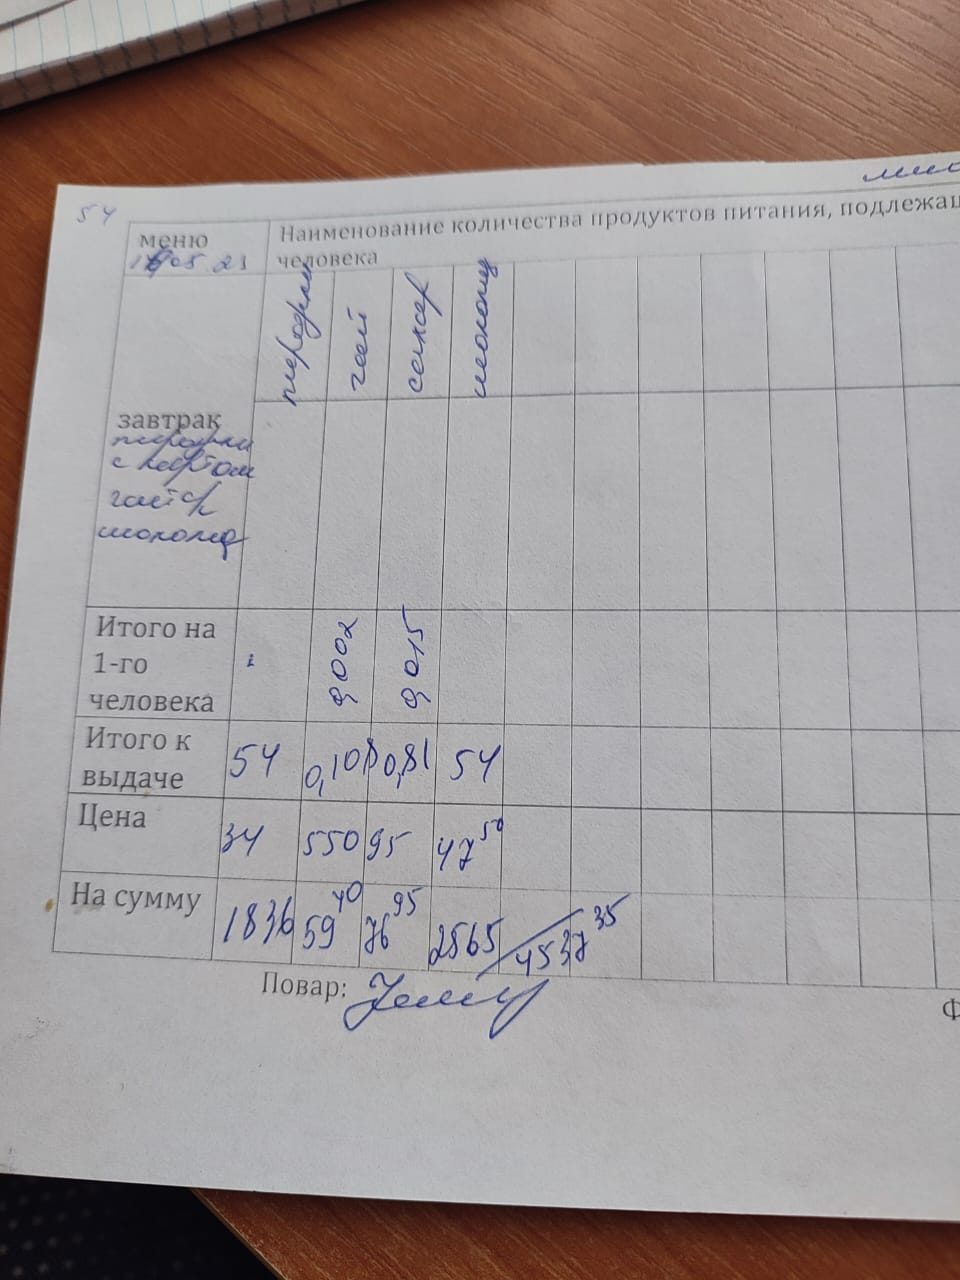 54
меню
Наименование количества продуктов питания, подлежащ
05.21
человека
пирожки
чай
сахар
шоколад
завтрак
пирожки
с картош
чай с/с
шоколад
Итого на
1-го
человека
1
0,002
0,015
Итого к
выдаче
54
0,108
0,81
54
Цена
34
550
95
47 50
На сумму
1836
59 40
76 95
2565
4537 35
Повар:
Ф